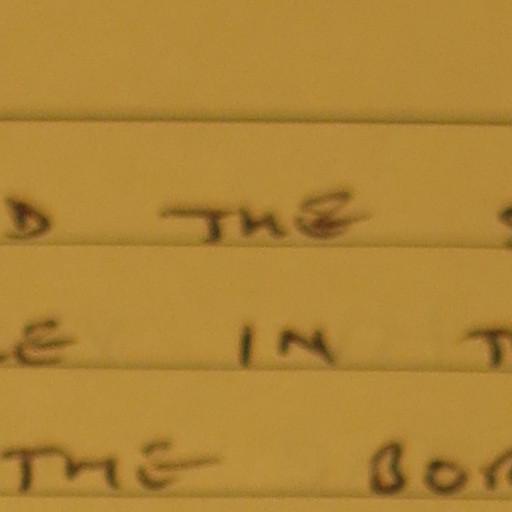 D THE
E IN T
THE BOR